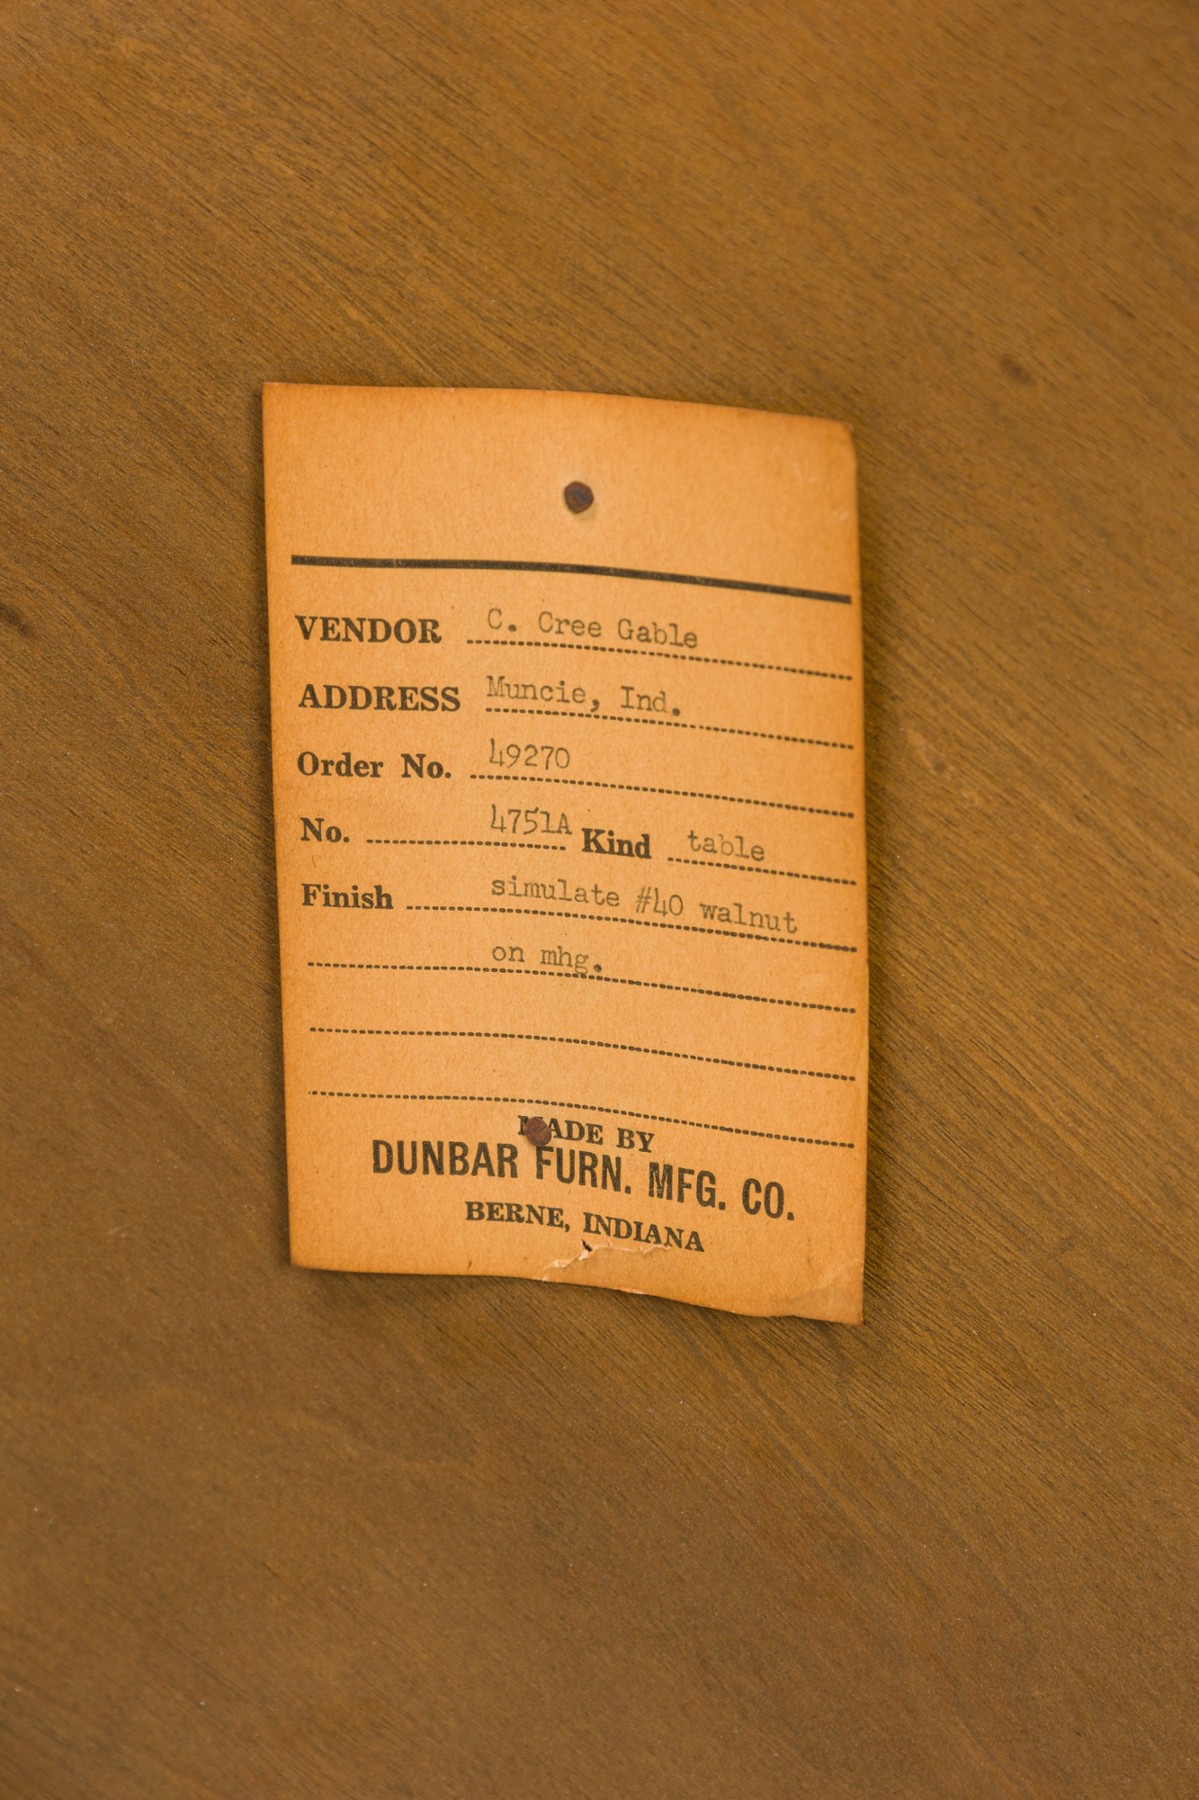 VENDOR C. Cree Gable
ADDRESS Muncie, Ind.
Order No. 49270
No. 4751A Kind table
Finish simulate #40 walnut
on mhg.
MADE BY
DUNBAR FURN. MFG. CO.
BERNE, INDIANA